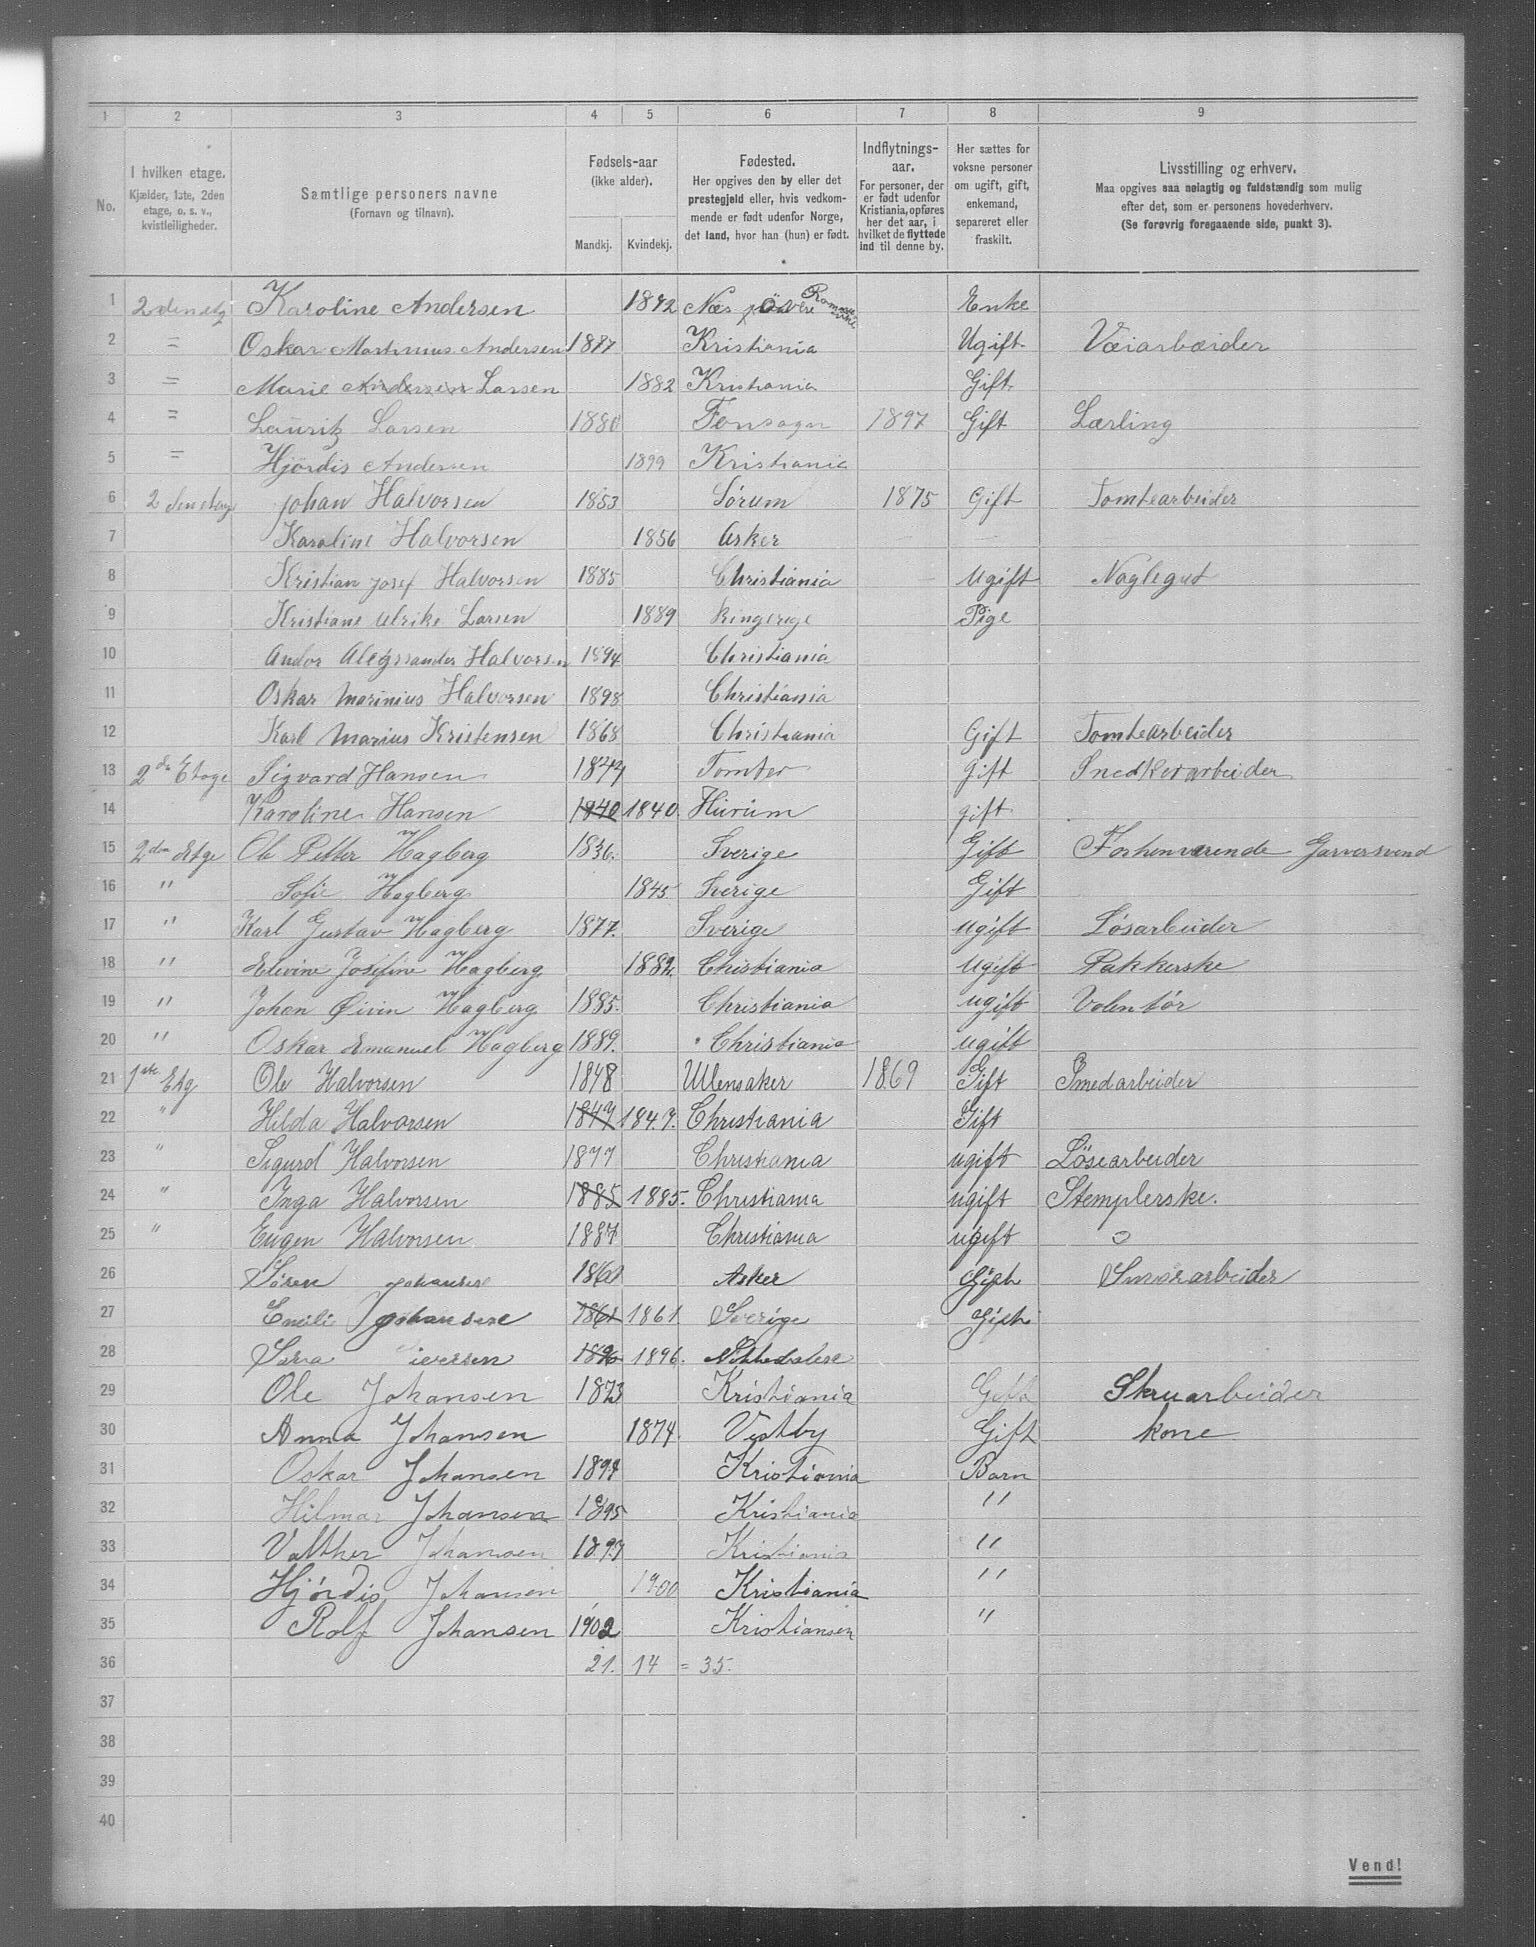 1 2 3 4 5 6 7 8 9
No.
I hvilken etage.
Kjælder, 1ste, 2den
etage, o. s. v.,
kvistleiligheder.
Samtlige personers navne
(Fornavn og tilnavn).
Fødsels-aar
(ikke alder).
Mandkj. Kvindekj.
Fødested.
Her opgives den by eller det
prestegjeld eller, hvis vedkom-
mende er født udenfor Norge,
det land, hvor han (hun) er født.
Indflytnings-
aar.
For personer, der
er født udenfor
Kristiania, opføres
her det aar, i
hvilket de flyttede
ind til denne by.
Her sættes for
voksne personer
om ugift, gift,
enkemand,
separeret eller
fraskilt.
Livsstilling og erhverv.
Maa opgives saa nøiagtig og fuldstændig som mulig
efter det, som er personens hovederhverv.
(Se forøvrig foregaaende side, punkt 3).
1 2den etg Karoline Andersen 1842 Næs Enke
2 = Oskar Martinius Andersen 1877 Kristiania Ugift Væiarbæider
3 = Marie Andersen Larsen 1882 Kristiania Gift
4 = Lauritz Larsen 1880 Fensogn 1897 Gift Lærling
5 = Hjördis Andersen 1899 Kristiania
6 2den etage Johan Halvorsen 1853 Sórum 1875 Gift Tomtearbeider
7 Karoline Halvorsen 1856 Asker
8 Kristian Josef Halvorsen 1885 Christiania Ugift Naglegut
9 Kristiane Ulrike Larsen 1889 Ringerige Pige
10 Andor Halvorsen 1894 Christiania
11 Oskar Marinius Halvorsen 1898 Christiania
12 Karl Marius Kristensen 1868 Christiania Gift Tomtearbeider
13 2de Etage Sigvard Hansen Tomter Gift Snedkerarbeider
14 Karoline Hansen 1840 1840. Hurum gift
15 2den Etge Ole Petter Hagberg 1836. Sverige Gift Forhenværende Garversvend
16 " Sofie Hagberg 1845 Sverige Gift
17 " Karl Gustav Hagberg 1877. Sverige ugift Løsarbeider
18 " Elevine Josefine Hagberg 1882. Christiania Ugift Pakkerske
19 " Johan Øivin Hagberg 1885. Christiania ugift Volentør
20 " Oskar Emanuel Hagberg 1889. Christiania ugift
21 1ste Etg Ole Halvorsen 1848 Ullensaker 1869 Gift Smedarbeider
22 " Hilda Halvorsen 1847 1847. Christiania Gift
23 " Sigurd Halvorsen 1877 Christiania ugift Lösearbeider
24 " Inga Halvorsen 1885 1885. Christiania ugift Stemplerske.
25 " Eugen Halvorsen 1887 Christiania ugift o
26 Søren Johansen 1861 Asker Gift
27 Emilie Johansen 1861 1861. Sverige Gift
28 Sara Iversen 1896 1896. Nittedalen
29 Ole Johansen 1873 Kristiania Gift Skruarbeider
30 Anna Johansen 1874. Vestby Gift kone
31 Oskar Johansen 1894 Kristiania Barn
32 Hilmar Johansen 1895 Kristiania "
33 Valther Johansen 1897 Kristiania "
34 Hjórdis Johansen 1900 Kristiania "
35 Rolf Johansen 1902 Kristianien "
36 21. 14 = 35.
37
38
39
40
Vend!